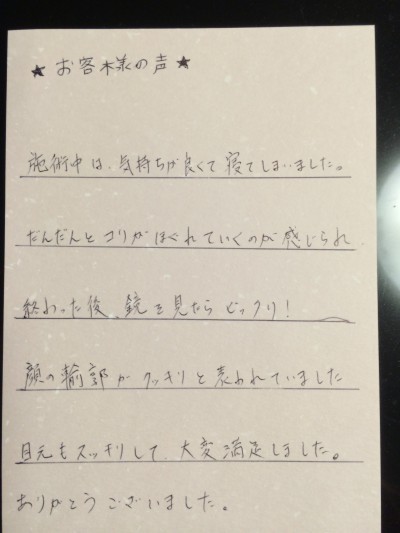 ★お客様の声★
施術中は、気持ちが良くて寝てしまいました。
だんだんとコリがほぐれていくのが感じられ、
終わった後、鏡を見たらビックリ!
顔の輪郭がクッキリと表われていました
目元もスッキリして、大変満足しました。
ありがとうございました。